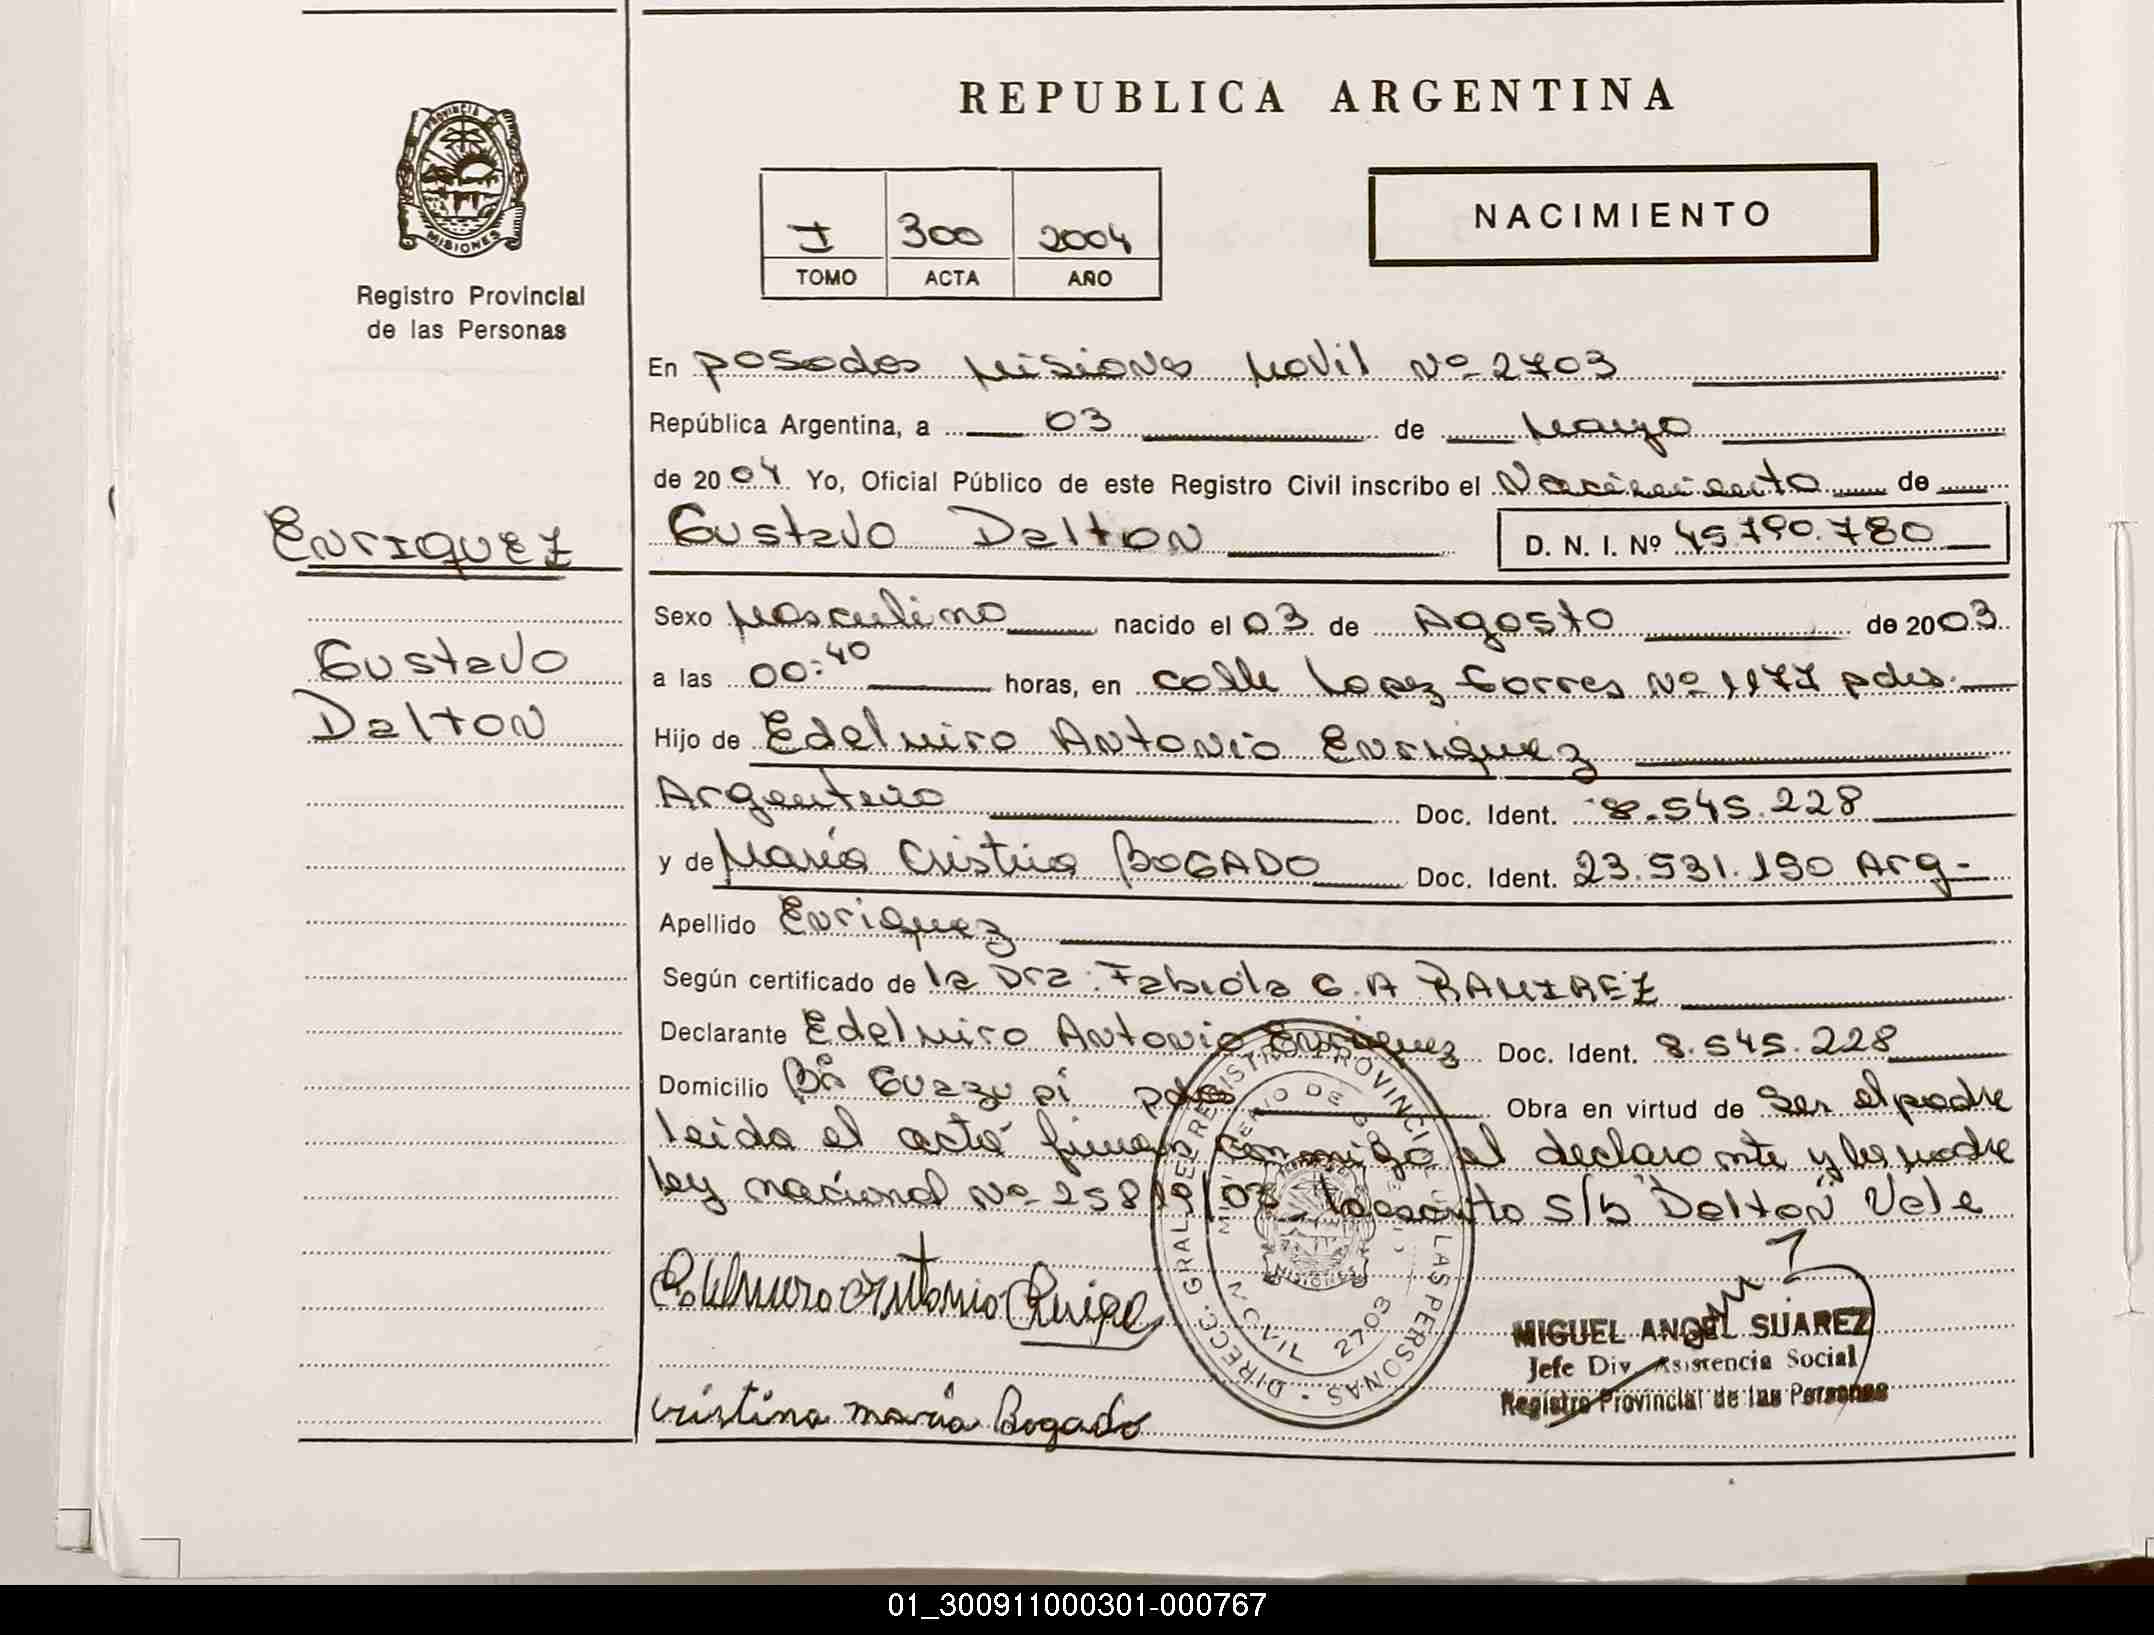 REPUBLICA ARGENTINA
PROVINCIA DE
MISIONES
Registro Provincial
de las Personas
I 300 2004
TOMO ACTA AÑO
NACIMIENTO
En Posadas Misiones Movil Nº 2703
República Argentina, a 03 de Mayo
de 2004 Yo, Oficial Público de este Registro Civil inscribo el Nacimiento de
ENRIQUEZ
Gustavo Dalton D. N. I. Nº 45.790.780
Sexo Masculino nacido el 03 de Agosto de 2003
Gustavo
a las 00:40 horas, en calle Lopez Torres Nº 1177 pdas.
Dalton
Hijo de Edelmiro Antonio Enriquez
Argentino Doc. Ident. 8.545.228
y de María Cristina BOGADO Doc. Ident. 23.531.190 Arg-
Apellido Enriquez
Según certificado de la Dra. Fabiola G. A RAMIREZ
Declarante Edelmiro Antonio Enriquez Doc. Ident. 8.545.228
Domicilio Bº Guazu pi pdas Obra en virtud de Ser el padre
leida el acta firman conmigo el declarante y la madre
ley nacional Nº 25819/03 s/b "Dalton" Vale
Edelmiro Antonio
DIRECC. GRAL. DE REGISTRO PROVINCIAL DE LAS PERSONAS
MOVIL 2703
MISIONES
MIGUEL ANGEL SUAREZ
Jefe Div. Asistencia Social
Registro Provincial de las Personas
cristina maria Bogado
01_300911000301-000767